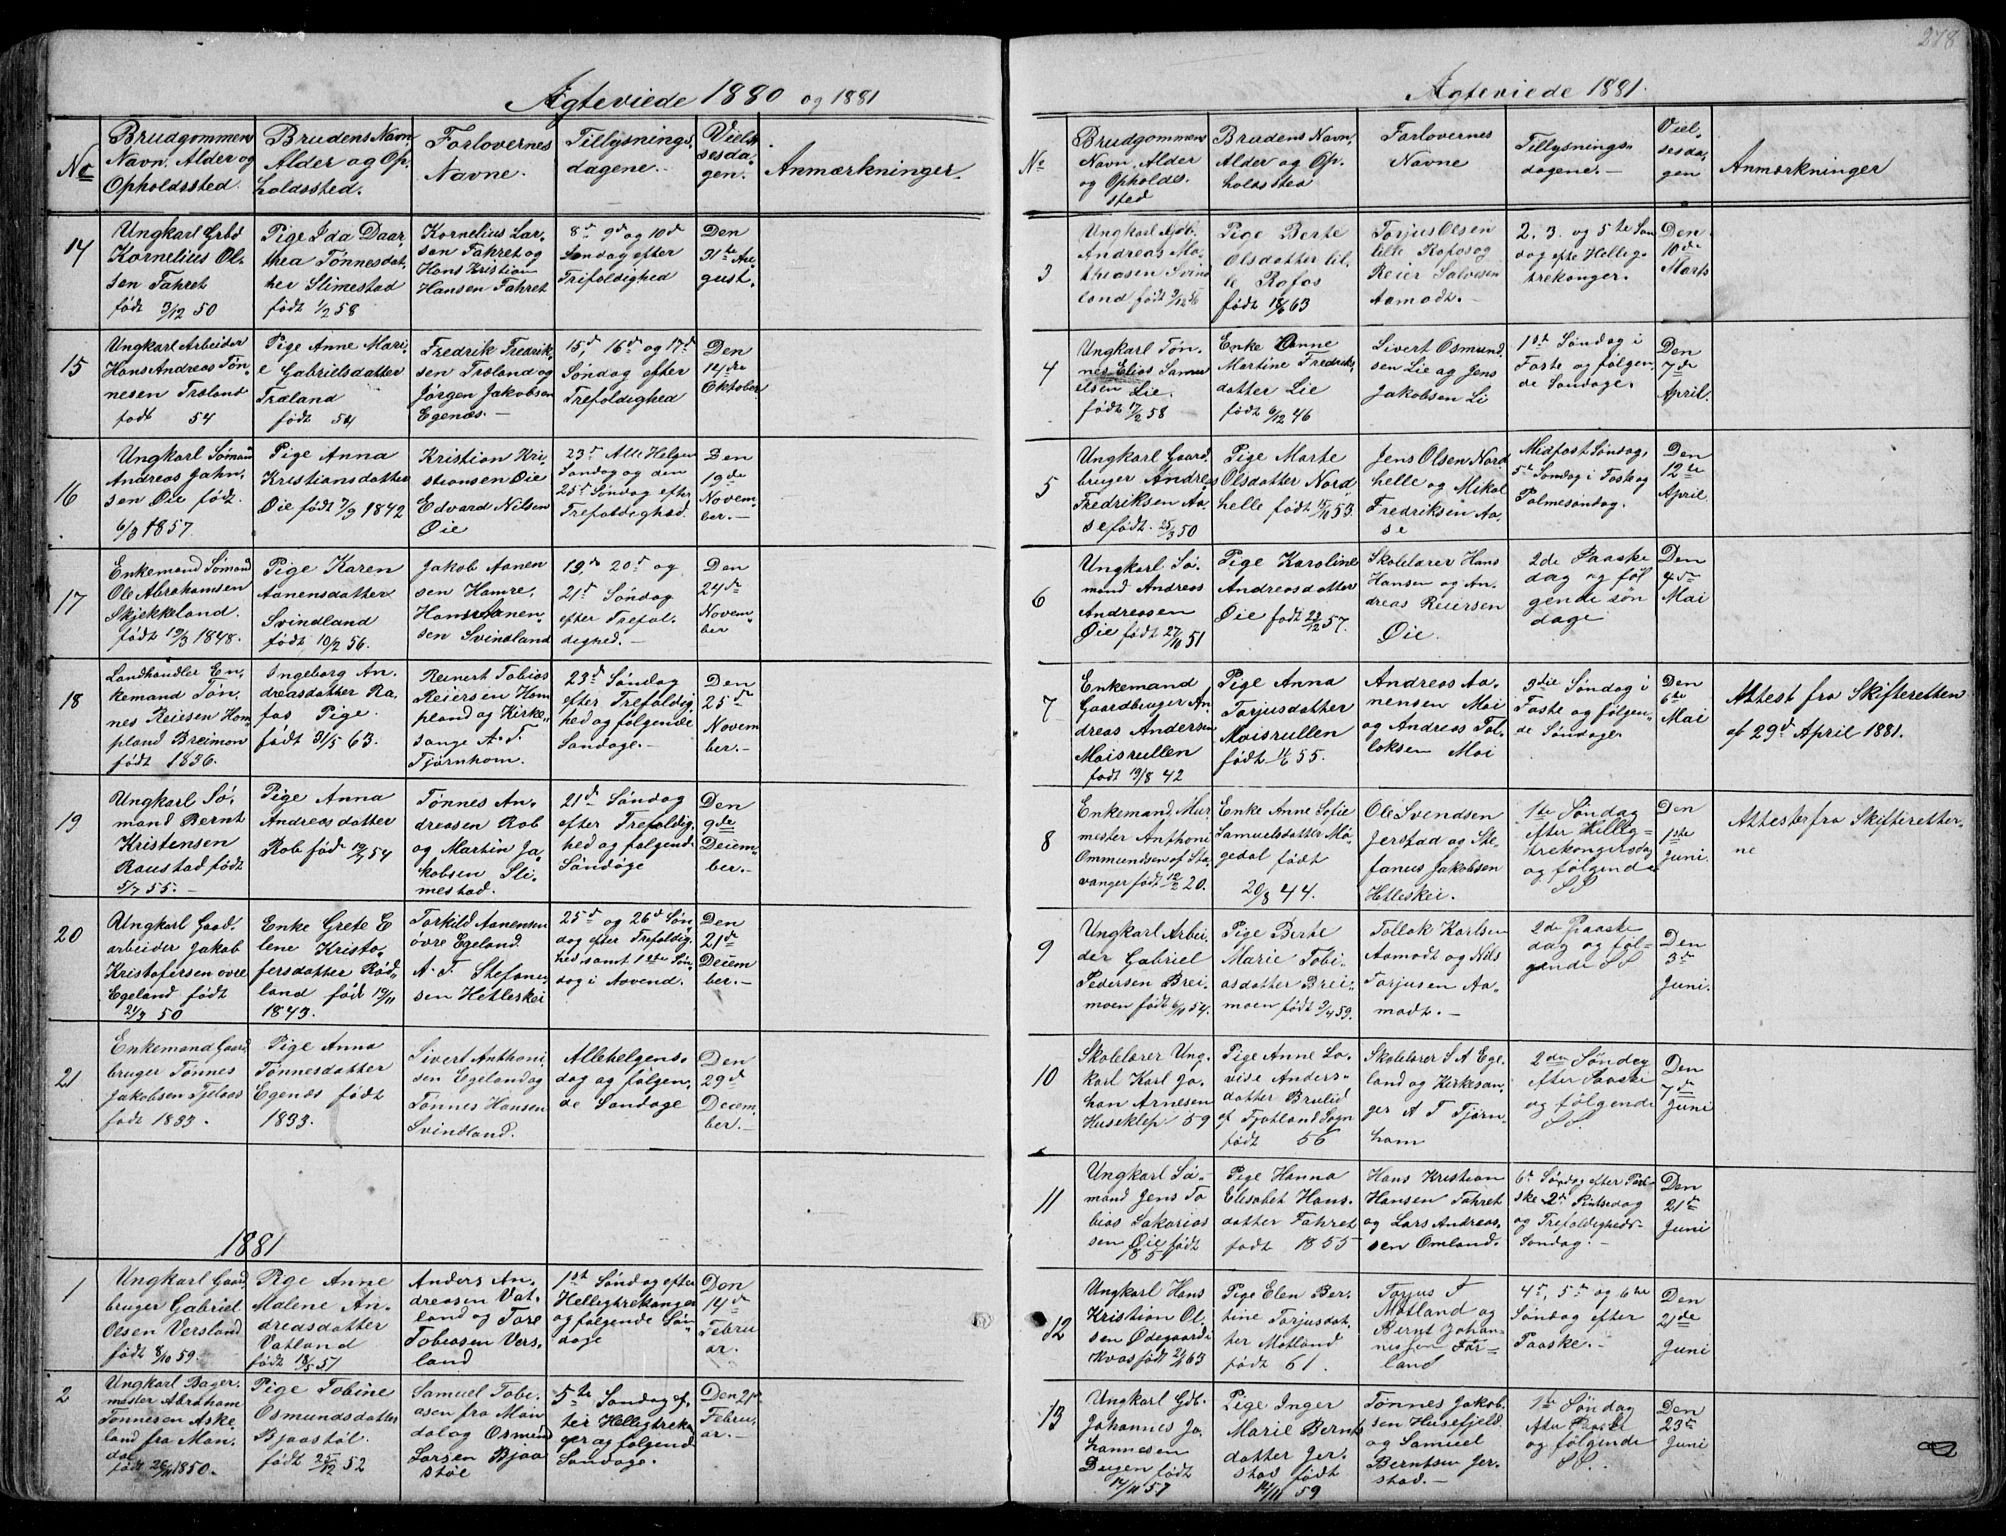 278
Ægteviede 1880 og 1881
No
Brudgommens
Navn, Alder og
Opholdssted.
Brudens Navn,
Alder og Op-
holdssted.
Forlovernes
Navne.
Tillysnings-
dagene.
Viel-
sesda-
gen.
Anmærkninger.
14
Ungkarl Grbd
Kornelius Ol-
sen Fahret
født 3/12 50
Pige Ida Daar-
thea Tønnesdat-
ter Slimestad
født 1/2 58
Kornelius Lar-
sen Fahret og
Hans Kristian
Hansen Fahret
8d 9d og 10d
Søndag efter
Trifoldighed
Den
31te Au-
gust.
15
Ungkarl Arbeider
Hans Andreas Tøn-
nesen Træland
født 54
Pige Anne Mari-
e Gabrielsdatter
Træland
født 54
Fredrik Fredrik-
sen Træland og
Jørgen Jakobsen
Egenæs.-
15d, 16d og 17d
Søndag efter
Trefoldighed
Den
14de
Oktober
16
Ungkarl Sømand
Andreas Jahn-
sen Øie født.
6/3 1857.
Pige Anna
Kristiansdatter
Øie født 7/9 1842
Kristian Kri-
stiansen Øie
Edvard Nilsen
Øie
23d Alle Helgen
Søndag og den
25d Søndag efter
Trefoldighed.
Den
19de
Novem-
ber.-
17
Enkemand Sømand
Ole Abrahamsen
Skjekkeland.
født 12/3 1848.
Pige Karen
Aanensdatter
Svindland
født 10/2 56.
Jakob Aanen-
sen Hamre,
Hans Aanen-
sen Svindland
19d, 20d og
21d Søndag
efter Trefol-
dighed.-
Den
24de
Novem-
ber
18
Landhandler En-
kemand Tøn-
nes Reiersen Hom-
pland Breimon
født 1836.
Ingeborg An-
dreasdatter Ra-
fos Pige.
født 31/5 63.
Reinert Tobias
Reiersen Hom-
pland og Kirke-
sange A. T.
Tjørnhom.
23d Søndag
efter Trefoldig-
hed og følgende
Søndage.-
Den
25de
Novem
ber.-
19
Ungkarl Sø-
mand Bernt
Kristensen
Raustad født
5/7 55.-
Pige Anna
Andreasdatter
Rob fød 19/7 54
Tønnes An-
dreasen Rob
og Martin Ja-
kobsen Sli-
mestad.
21de Søndag
efter Trefoldig-
hed og følgende
Søndage
Den
9de
Deiem-
ber.-
20
Ungkarl Gaad-
arbeider Jakob
Kristofersen øvre
Egeland født
21/3 50
Enke Grete E-
lene Kristo-
fersdatter Rød-
land fød 19/11
1843.
Torkild Aanensen
øvre Egeland.
A. T. Stefane-
sen Hetleskei
25d og 26d Søn-
dag efter Trefoldig-
hed samt 1ste Søn-
dag i Advend.
Den
21de
Deiem
ber.-
21
Enkemand Gaard
bruger Tønnes
Jakobsen Tjelsaes
født 1833.
Pige Anna
Tønnesdatter
Egenæs født
1833.
Sivert Anthoni-
sen Egeland og
Tønnes Hansen
Svindland.
Allehelgens-
dag og følgen-
de Søndage
Den
29d
Deiem-
ber.-
1881
1
Ungkarl Gaard-
bruger Gabriel
Olsen Versland
født 8/10 59.-
Pige Anne
Malene An-
dreasdatter
Vatland
født 18/5 57
Anders An-
dreasen Vat-
land og Tore
Tobiasen Vers-
land
1st Søndag efter
Helligtrekonger
og følgende Søn-
dage
Den
14de
Febru-
ar.
2
Ungkarl Bager-
mester Abraham
Tønnesen Aske
land fra Man-
dal
født 26/11 1850.
Pige Tobine
Osmundsdatter
Bjaastøl.
født 25/12 52
Samuel Tobi-
asen fra Man
dal og Osmund
Larsen Bjaa-
støl
5te Søndag ef-
ter Helligtrekon-
ger og følgende
Søndage.
Den 21d
Febru-
ar.
Ægteviede 1881.
No
Brudgommens
Navn, Alder
og Opholds-
sted
Brudens Navn,
Alder og Op-
holdssted
Forlovernes
Navne
Tillysnings-
dagene.-
Viel-
sesda-
gen
Anmærkninger
3
Ungkarl Gdb.
Andreas Ma-
thiasen Svind
land født 9/12 56
Pige Berte
Olsdatter lil-
le Rafos
født 18/6 63
Torjus Olsen
lille Rafos og
Reier Salvesen
Aamodt.-
2. 3. og 5te Søn
dag efte Hellig-
trekonger.
Den
10de
Marts
4
Ungkarl Tøn-
nes Elias Samu
elsen Lie.
født 17/2 58
Enke Anne
Martine Fredriks-
datter Lie
født 6/12 46
Sivert Osmund
sen Lie og Jens
Jakobsen Li
1st Søndag i
Faste og følgen-
de Søndage.
Den
7de
April.
5
Ungkarl Gaard
bruger Andreas
Fredriksen Aa-
se født. 25/3 50
Pige Marte
Olsdatter Nord
helle født 15/10 53.
Jens Olsen Nord
helle og Mikal
Fredriksen Aa-
se
Midfast Søndag,
5te Søndag i Faste og
Palmesøndag.
Den
12te
April
6
Ungkarl Sø-
mand Andreas
Andreasen
Øie født 27/10 51
Pige Karoline
Andreasdatter
Øie født 22/12 57.
Skolelærer Hans
Hansen og An-
dreas Reiersen
Øie.
2de Paaske
dag og føl
gende Søn
dage
Den
4de
Mai
7
Enkemand
Gaardbruger An-
dreas Andersen
Moisrullen
født 19/8 42
Pige Anna
Torjusdatter
Moisrullen
født 1/6 55.
Andreas Aa-
nensen Moi
og Andreas Tol-
loksen Moi
3die Søndag i
Faste og følgen-
de Søndage
Den
6te
Mai
Attest fra Skifteretten
af 29d April 1881.
8
Enkemand, Mur-
mester Anthoni
Ommundsen af Sta-
vanger født 12/2 20.
Enke Anne Sofie
Samuelsdatter Mø-
gedal født
20/8 44.
Ole Svendsen
Jerstad og Ste-
fanus Jakobsen
Hetleskei.
1ste Søndag
efter Hellig-
trekongersdag
og følgende
S S
Den
1ste
Juni.
Attester fra Skifteretter-
ne
9
Ungkarl Arbei-
der Gabriel
Pedersen Brei-
moen født 6/10 54.
Pige Berte
Marie Tobi-
asdatter Brei-
moen født 3/4 59.
Tollak Karlsen
Aamodt og Nils
Torjusen Aa-
modt.-
2de Paaske
dag og føl-
gende S S
Den
3de
Juni.
10
Skolelærer Ung-
karl Karl Jo-
han Arnesen
Huseklep 59
Pige Anne Lo-
vise Anders-
datter Brulid
af Fjotland Sogn
født 56
Skolelærer S A Ege-
land og Kirkesan-
ger A T Tjørn-
hom
2den Søndag
efter Paaske
og følgende
S S.
Den
7de
Juni
11
Ungkarl Sø-
mand Jens To
bias Sakarias
sen Øie født
1857
Pige Hanna
Elisabet Hans-
datter Fahret
født 1855
Hans Kristian
Hansen Fahret
og Lars Andreas-
sen Omland.
6te Søndag efter Paa-
ske 2d Pintsedag
og Trefoldigheds
Søndag.-
Den
21de
Juni
12
Ungkarl Hans
Kristian Ol-
sen Ødegaard i
Kvas født 24/1 63
Pige Elen Ber-
tine Torjusdat-
ter Motland
født 61.
Torjus T
Motland og
Bernt Johan-
nessen Før-
land
4de, 5te og 6te
Søndag efter
Paaske.-
Den
21de
Juni
13
Ungkarl Gdb.
Johannes Jo-
hannesen
Dugen født
14/11 57
Pige Inger
Marie Bernts
datter Jer-
stad født
14/11 59
Tønnes Jakob-
sen Husefjeld
og Samuel
Berntsen Jer-
stad.-
1te Søndag
efter Paaske
og følgende
S S.
Den
23de
Juni